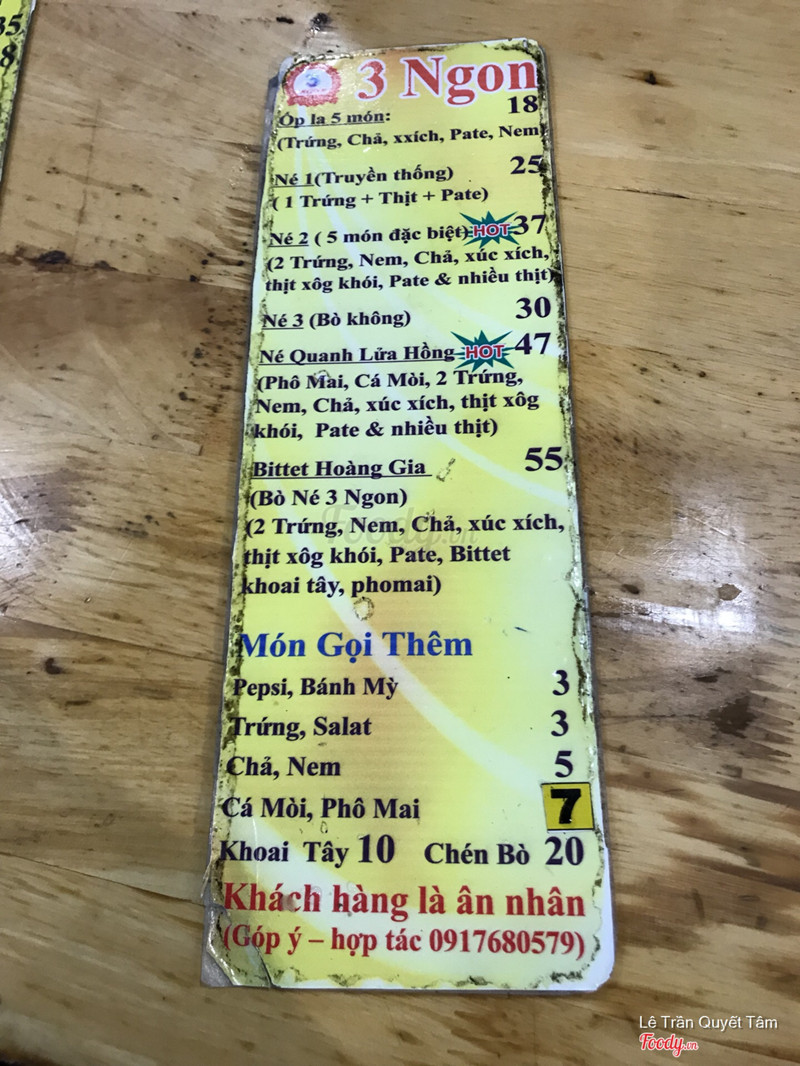 35
8
3 Ngon
Ốp la 5 món: 18
(Trứng, Chả, xxích, Pate, Nem)
Né 1(Truyền thống) 25
( 1 Trứng + Thịt + Pate)
Né 2 ( 5 món đặc biệt) HOT 37
(2 Trứng, Nem, Chả, xúc xích,
thịt xôg khói, Pate & nhiều thịt)
Né 3 (Bò không) 30
Né Quanh Lửa Hồng HOT 47
(Phô Mai, Cá Mòi, 2 Trứng,
Nem, Chả, xúc xích, thịt xôg
khói, Pate & nhiều thịt)
Bittet Hoàng Gia 55
(Bò Né 3 Ngon)
(2 Trứng, Nem, Chả, xúc xích,
thịt xôg khói, Pate, Bittet
khoai tây, phomai)
Foody.vn
Món Gọi Thêm
Pepsi, Bánh Mỳ 3
Trứng, Salat 3
Chả, Nem 5
Cá Mòi, Phô Mai 7
Khoai Tây 10 Chén Bò 20
Khách hàng là ân nhân
(Góp ý – hợp tác 0917680579)
Lê Trần Quyết Tâm
Foody.vn